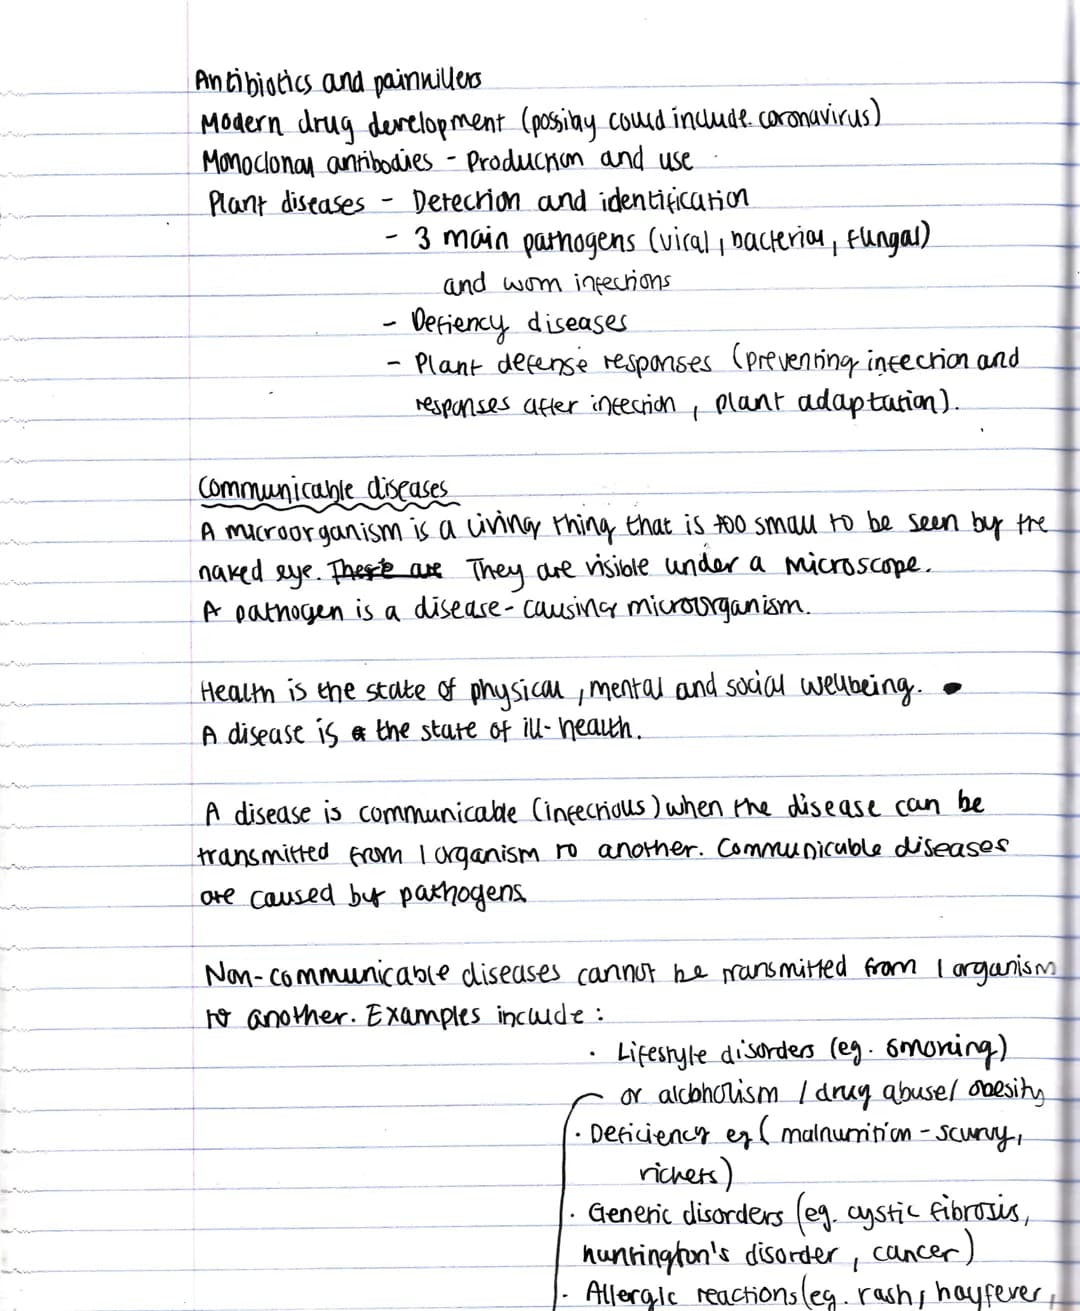 Antibiotics and painkillers
Modern drug development (possibly could include coronavirus)
Monoclonal antibodies - Production and use
Plant diseases - Detection and identification
- 3 main pathogens (viral, bacterial, fungal)
and worm infections
- Defiency diseases
- Plant defense responses (preventing infection and
responses after infection, plant adaptation).
Communicable diseases
A microorganism is a living thing that is too small to be seen by the
naked eye. There are They are visible under a microscope.
A pathogen is a disease-causing microorganism.
Health is the state of physical, mental and social wellbeing.
A disease is a the state of ill-health.
A disease is communicable (infectious) when the disease can be
transmitted from 1 organism to another. Communicable diseases
are caused by pathogens
Non-communicable diseases cannot be transmitted from 1 organism
to another. Examples include:
· Lifestyle disorders (eg. smoking)
or alcoholism / drug abuse/ obesity
· Deficiency eg ( malnutrition - scurvy,
rickets)
· Genetic disorders (eg. cystic fibrosis,
huntington's disorder, cancer)
· Allergic reactions (eg. rash, hayfever,